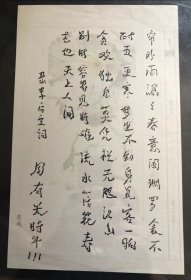 帘外雨潺々春意阑珊罗衾不
耐五更寒梦里不知身是客一晌
贪欢独自莫凭栏无限江山
别时容易见时难流水落花春
去也天上人间
后主词
周有光
时年111